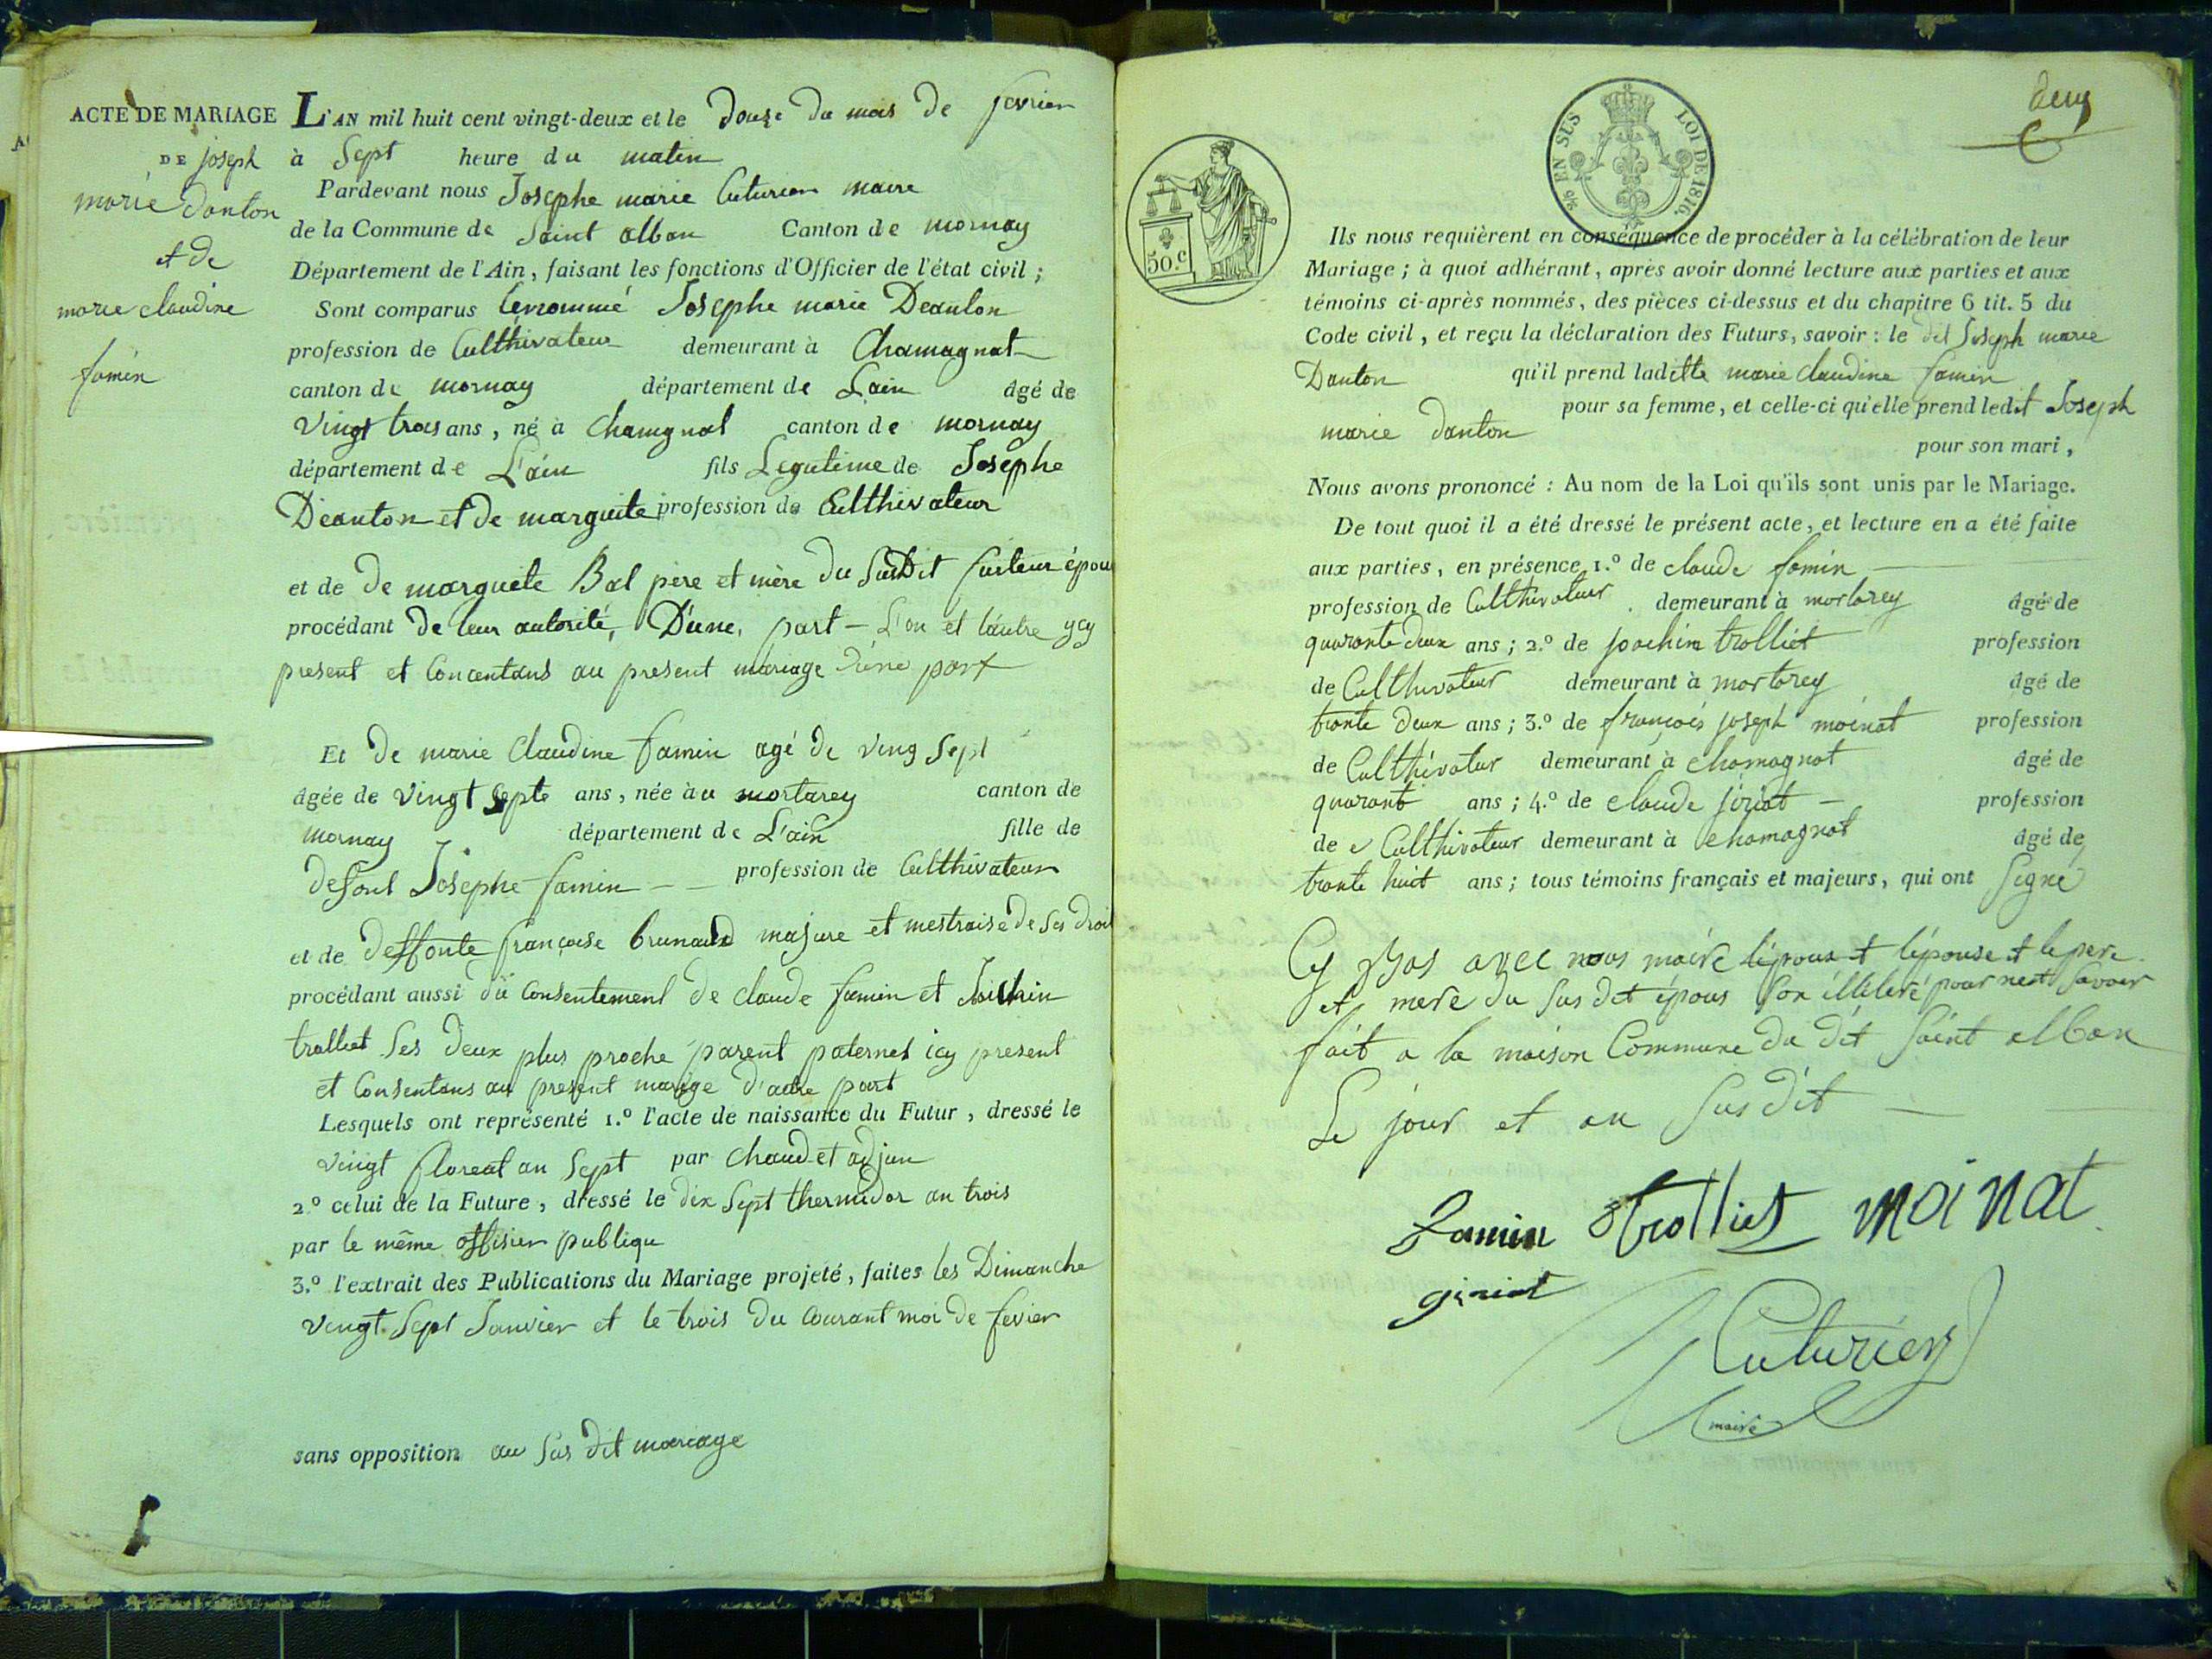 ACTE DE MARIAGE
DE joseph
marie Danton
et de
marie claudine
famin
L'AN mil huit cent vingt-deux et le Douze du mois de fevrier
à Sept heure du matin
Pardevant nous Josephe marie Cuturier maire
de la Commune de Saint alban Canton de mornay
Département de l'Ain, faisant les fonctions d'Officier de l'état civil ;
Sont comparus lenommé Josephe marie Deanton
profession de Culthivateur demeurant à Chamagnat
canton de mornay département de Lain âgé de
Vingt trois ans, né à Chamgnat canton de mornay
département de L'ain fils Legutime de Josephe
Deanton et de marguite profession de Culthivateur
et de De marguete Bal père et mère du Susdit futeur épou
procédant De leur autorité, D'une, part - L'on et l'autre ycy
present et Concentans au present mariage d'une part
Et De marie Claudine famin agé de Ving Sept
âgée de Vingt Septe ans, née à u mortarey canton de
mornay département de L'ain fille de
Defont Josephe famin profession de Culthivateur
et de Deffonte françoise brunaud majure et mestraise de Ses droit
procédant aussi du Consentement de Claude famin et Joichin
trolliet Ses Deux plus proche parent paternel icy present
et Consentans au present marige d'autre part
Lesquels ont représenté 1.º l'acte de naissance du Futur, dressé le
vingt floreal an Sept par Chaudet adjun
2.º celui de la Future, dressé le dix Sept thermidor an trois
par le même offisier publiqu
3.º l'extrait des Publications du Mariage projeté, faites les Dimanche
vingt Sept Janvier et le trois Du Courant moi de fevier
sans opposition au Sus dit mariage
deux
3/5 EN SUS LOI DE 1816.
50.c
Ils nous requièrent en conséquence de procéder à la célébration de leur
Mariage ; à quoi adhérant, après avoir donné lecture aux parties et aux
témoins ci-après nommés, des pièces ci-dessus et du chapitre 6 tit. 5 du
Code civil, et reçu la déclaration des Futurs, savoir : le dit Joseph marie
Danton qu'il prend laditte marie claudine famin
pour sa femme, et celle-ci qu'elle prend ledit Joseph
marie danton
pour son mari,
Nous avons prononcé : Au nom de la Loi qu'ils sont unis par le Mariage.
De tout quoi il a été dressé le présent acte, et lecture en a été faite
aux parties, en présence 1.º de claude famin
profession de Culthivateur demeurant à mortarey âgé de
quarante deux ans ; 2.º de joachim trolliet profession
de Culthivateur demeurant à mortarey âgé de
trante Deux ans ; 3.º de françois joseph moinat profession
de Culthivatur demeurant à chamagnat âgé de
quarant ans ; 4.º de claude jiriat profession
de Culthivateur demeurant à chamagnat âgé de
trante huit ans ; tous témoins français et majeurs, qui ont Signé
Cy Bas avec nous maire lépoux et lépouse et le pere
et mere du Sus dit épous son illiteré pour ne Savoir
fait a la maison Commune du dit Saint alban
Le jour et an Susdit
Famin trolliet moinat
giriat
Cuturier
maire